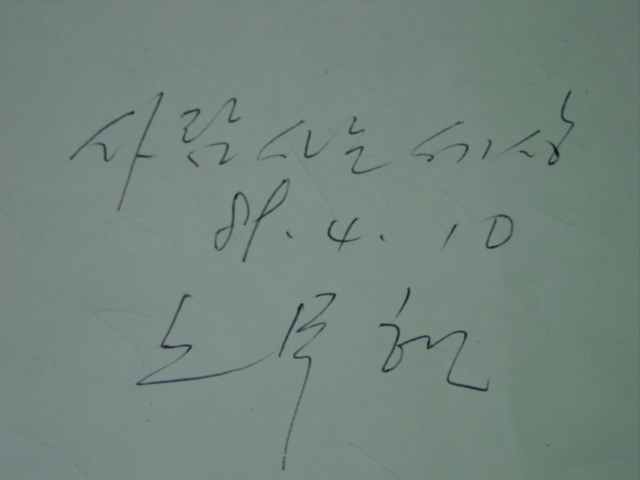 사람 사는 세상
89. 4. 10
노무현